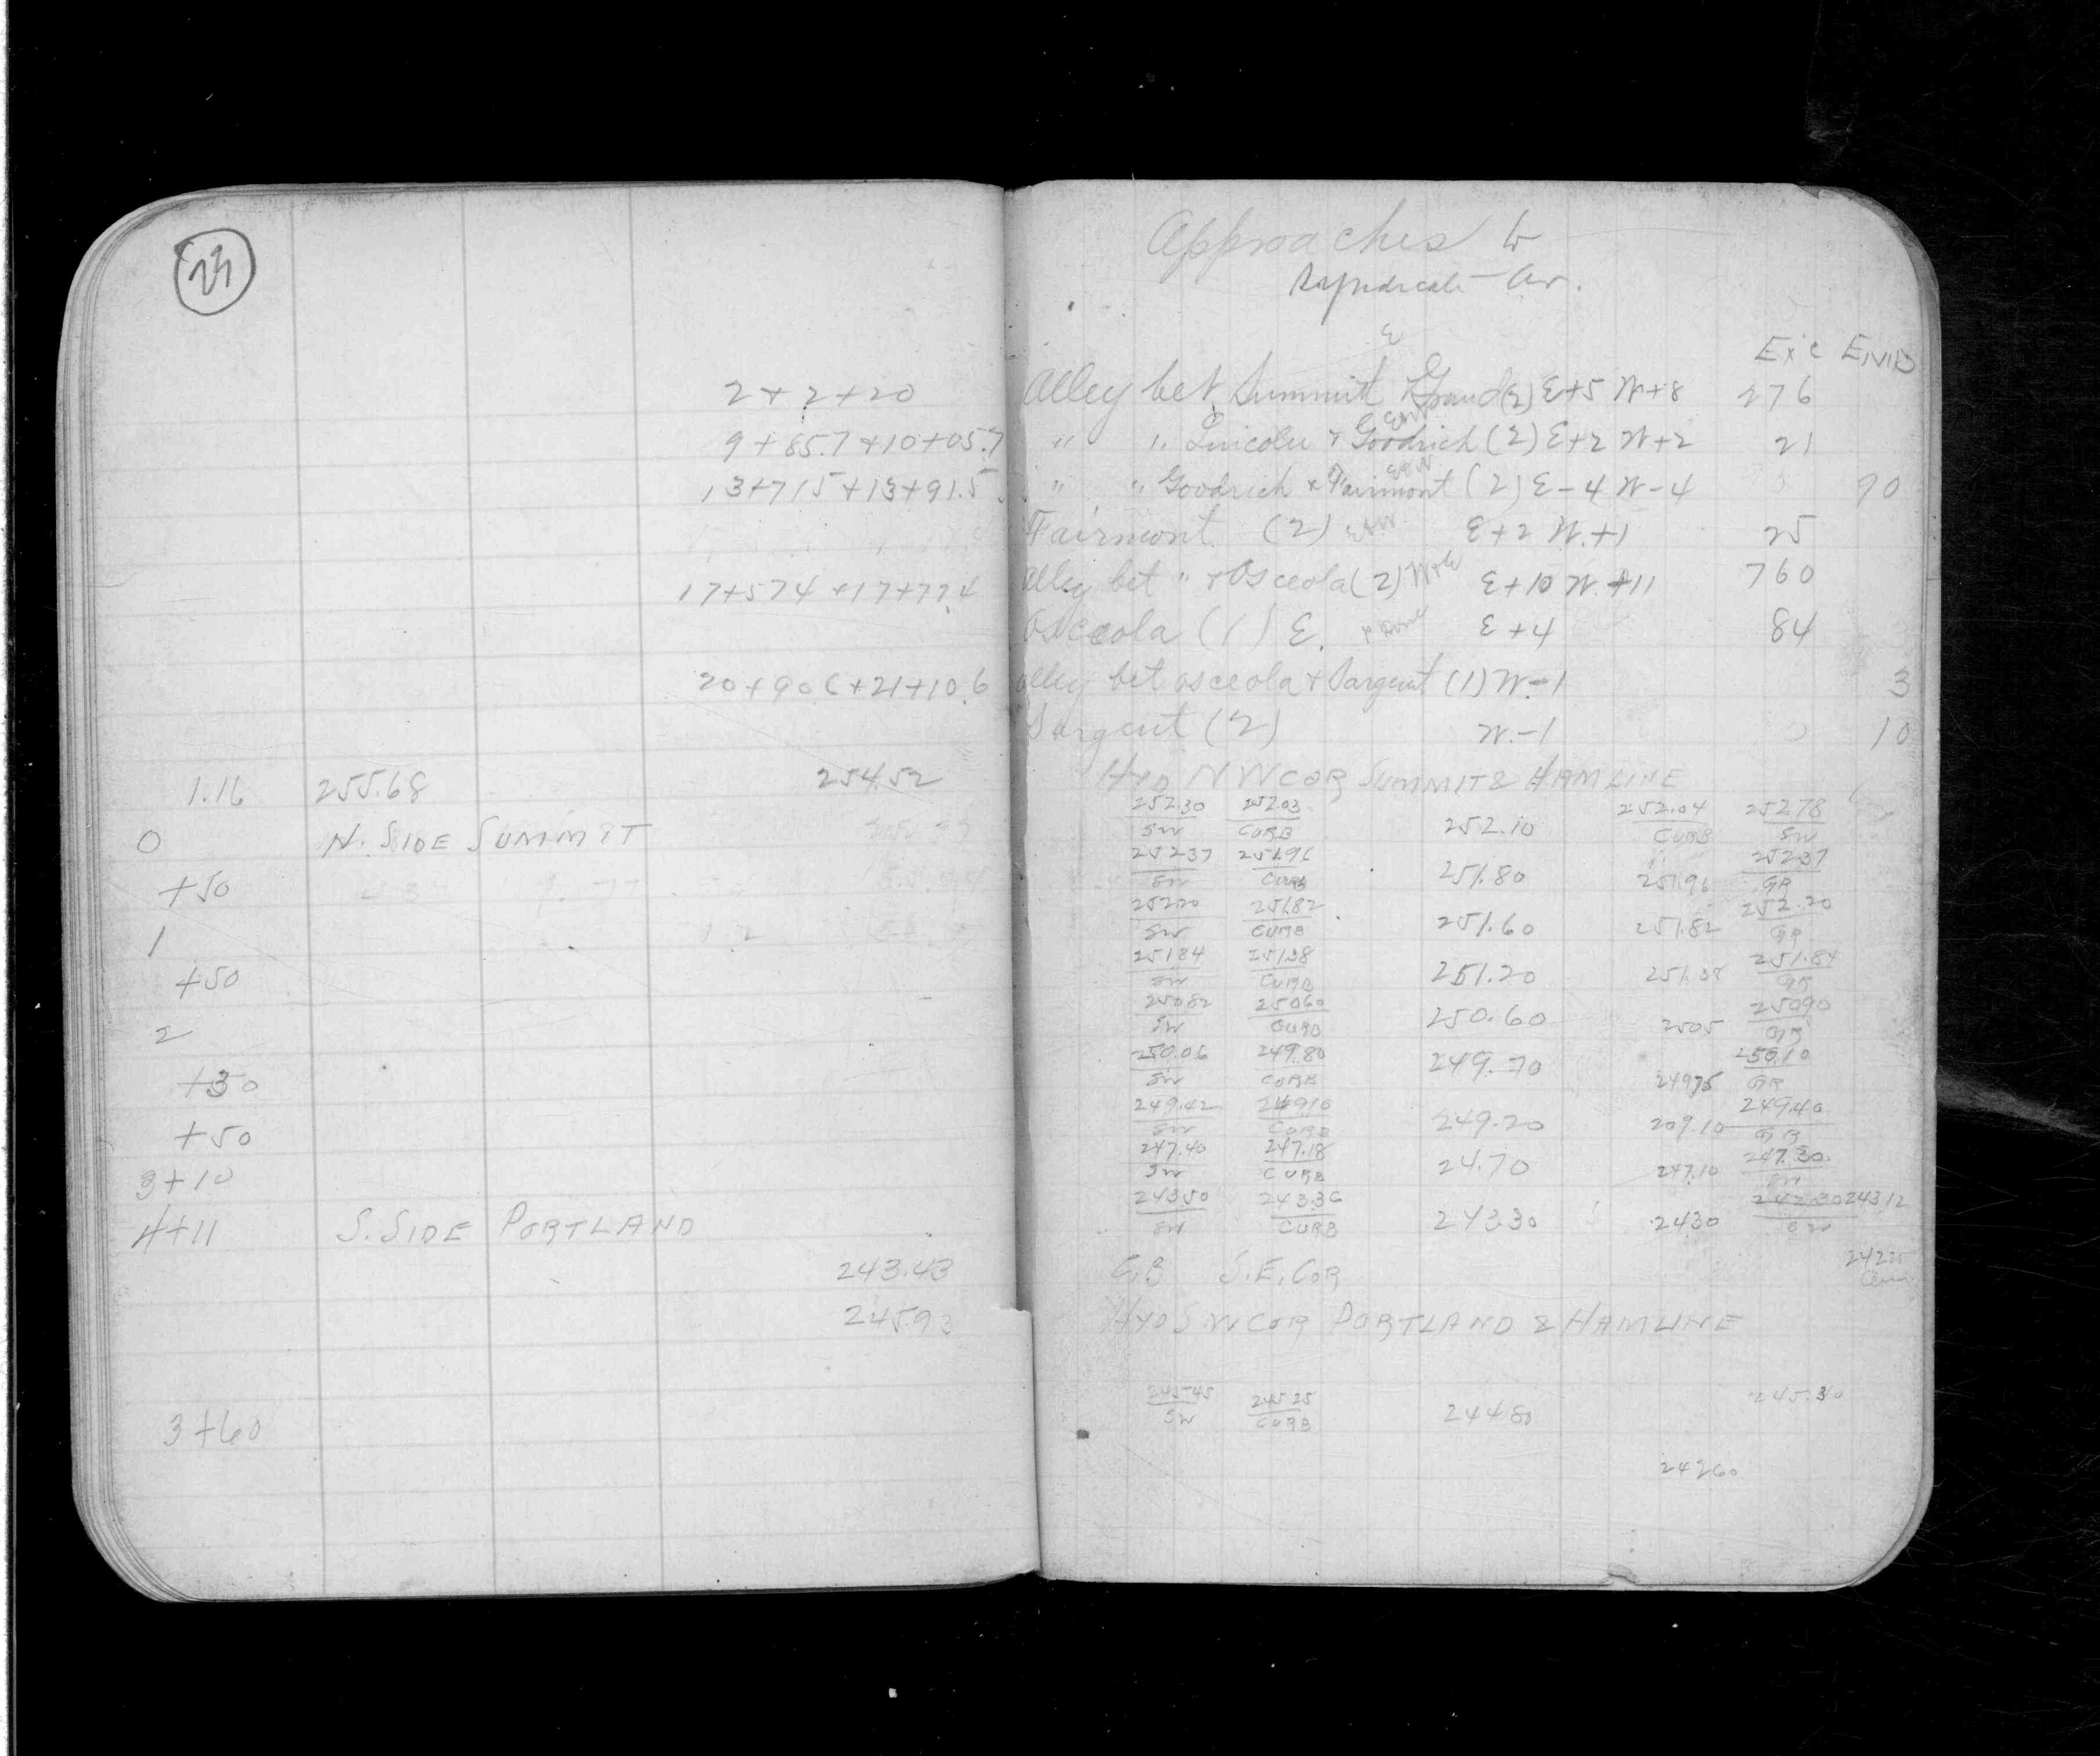 Approaches to
Syndicate Av.
Exc Emb
2 + 2+20 Alley bet. Summit & Grand (2) E+5 W+8 276
9+85.7+10+05.7 " " Lincoln & Goodrich (2) E+2 W+2 21
13+71.5+13+91.5 " " Goodrich & Fairmont (2) E-4 W-4 90
Fairmont (2) E+2 W.+1 25
17+574+17+774 Alley bet " & Osceola (2) E+10 W.+11 760
Osceola (1) E. E+4 84
20+906+21+10.6 alley bet osceola & Sargent (1) W-1 3
Sargent (2) W.-1 10
1.16 255.68 254.52 HYD N W COR SUMMIT & HAMLINE
0 N. SIDE SUMMIT 252.30 SW 252.03 CURB 252.10 252.04 CURB 252.78 SW
+50 252.37 SW 251.96 CURB 251.80 251.96 252.37 GR
1 252.20 SW 251.82 CURB 251.60 251.82 252.20 GR
+50 251.84 SW 251.38 CURB 251.20 251.38 251.84 GR
2 250.82 SW 250.60 CURB 250.60 250.5 250.90 GR
+30 250.06 SW 249.80 CURB 249.70 249.75 250.10 GR
+50 249.42 SW 249.10 CURB 249.20 209.10 249.40 GR
3+10 247.40 SW 247.18 CURB 24.70 247.10 247.30 SW
4+11 S. SIDE PORTLAND 243.50 SW 243.36 CURB 243.30 243.0 242.30 SW 243.12
243.43 C.B S.E. COR 242.25
245.93 HYD S.W COR PORTLAND & HAMLINE
3+60 245.45 SW 245.25 CURB 244.80 245.30
242.60